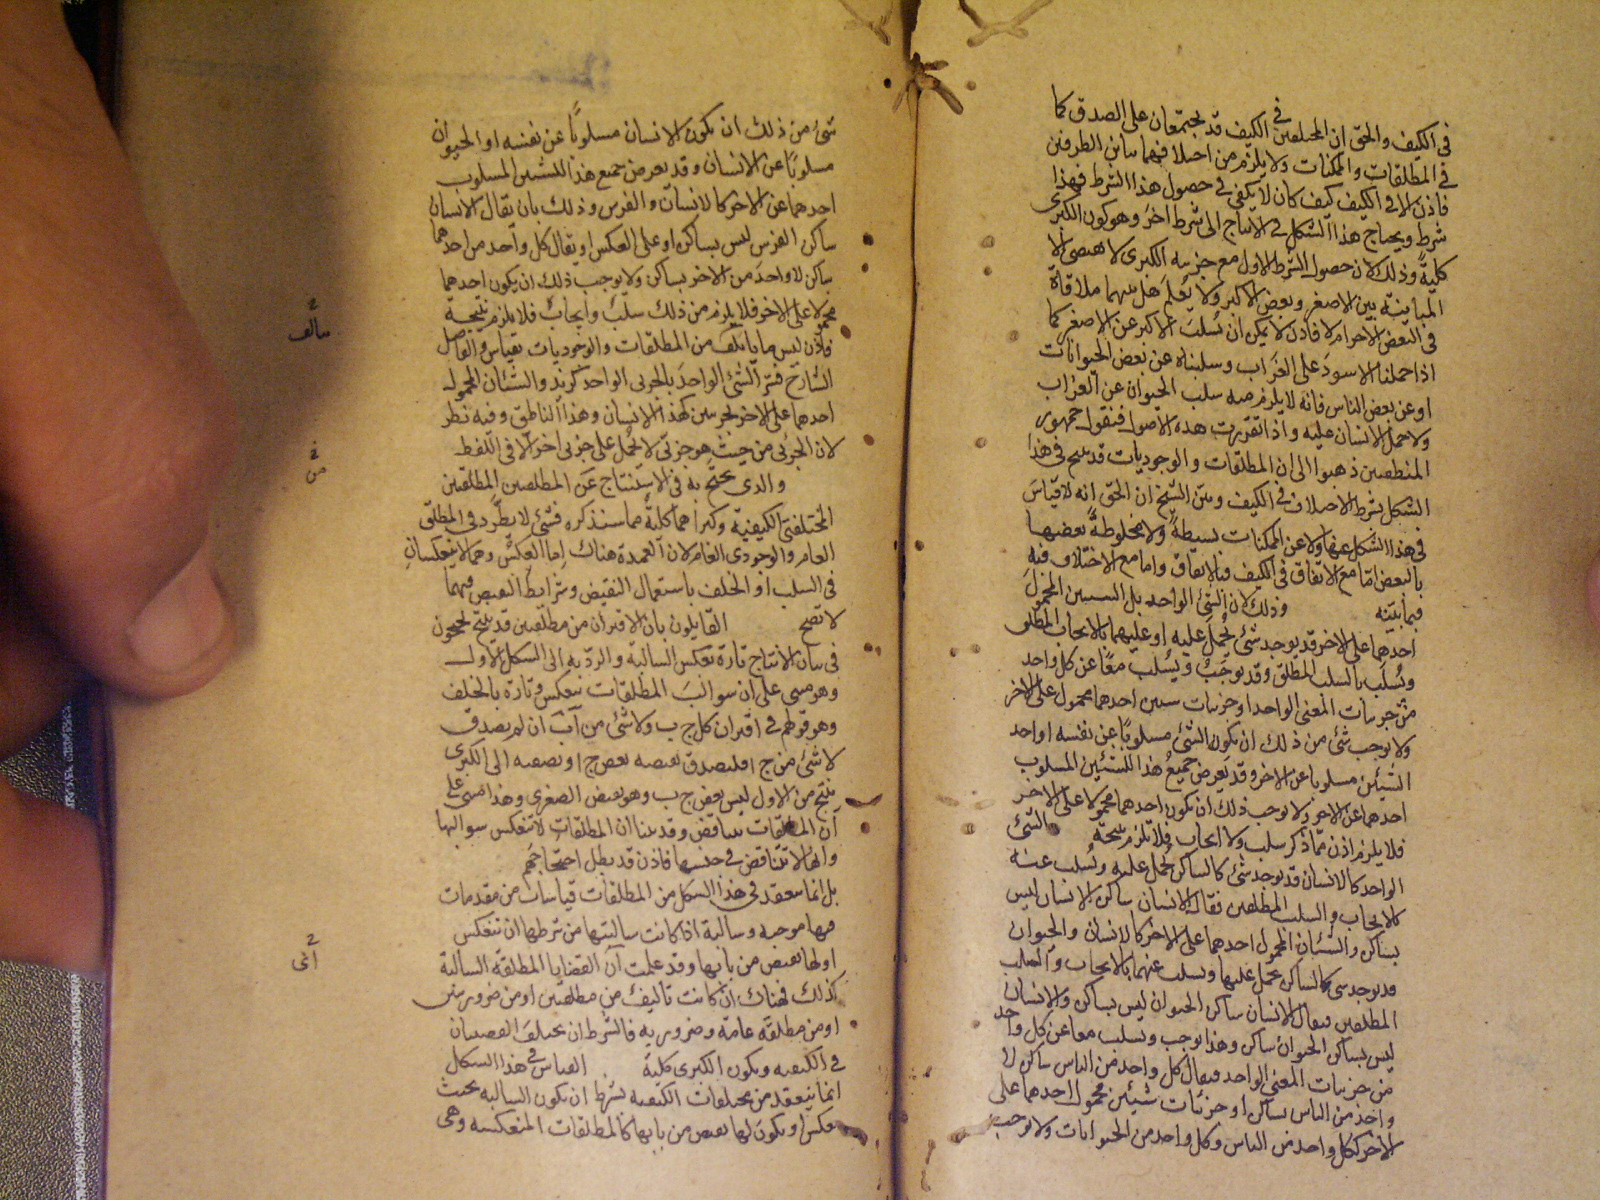 في الكيف والحق ان المختلفين في الكيف قد يجتمعان على الصدق كما
في المطلقات والممكنات ولا يلزم من اختلافهما تباين الطرفين
فاذن الا في الكيف كيف كان لا يكفي في حصول هذا الشرط فهذا
شرط ويحتاج هذا الشكل في الانتاج الى شرط اخر وهو كون الكبرى
كلية وذلك لان حصول الشرط الاول مع جزئية الكبرى لا يقتضي الا
المباينة بين الاصغر وبعض الاكبر ولا يعلم هل بينهما ملاقاة
في البعض الاخر ام لا فاذن لا يمكن ان يسلب الاكبر عن الاصغر كما
اذا حملنا الاسود على الغراب وسلبناه عن بعض الحيوانات
او عن بعض الناس فانه لا يلزم منه سلب الحيوان عن الغراب
ولا حمل الانسان عليه واذا تقررت هذه الاصول فنقول جمهور
المنطقيين ذهبوا الى ان المطلقات والوجوديات قد ينتج في هذا
الشكل بشرط الاختلاف في الكيف وبين الشيخ ان الحق انه لا قياس
في هذا الشكل عنها ولا عن الممكنات بسيطة ولا مخلوطة بعضها
بالبعض اما مع الاتفاق في الكيف فبالاتفاق واما مع الاختلاف فيه
فبما بينه وذلك لان الشيء الواحد بل الشيئين المحمول
احدهما على الاخر قد يوجد شيء يحمل عليه او عليهما بالايجاب المطلق
ويسلب بالسلب المطلق وقد يوجب ويسلب معا عن كل واحد
من جزئيات المعنى الواحد او جزئيات شيئين احدهما محمول على الاخر
ولا يوجب شيء من ذلك ان يكون الشيء مسلوبا عن نفسه او احد
الشيئين مسلوبا عن الاخر وقد يعرض جميع هذا للشيئين المسلوب
احدهما عن الاخر ولا يوجب ذلك ان يكون احدهما محمولا على الاخر
فلا يلزم اذن مما ذكر سلب ولا ايجاب فلا تلزم نتيجة الشيء
الواحد كالانسان قد يوجد شيء كالساكن يحمل عليه ويسلب عنه
كالايجاب والسلب المطلقين فقال الانسان ساكن الانسان ليس
بساكن والشيئان المحمول احدهما على الاخر كالانسان والحيوان
قد يوجد شيء كالساكن يحمل عليها ويسلب عنهما بالايجاب والسلب
المطلقين فيقال الانسان ساكن الحيوان ليس بساكن والانسان
ليس بساكن الحيوان ساكن وهذا يوجب ويسلب معا عن كل واحد
من جزئيات المعنى الواحد فيقال كل واحد من الناس ساكن لا
واحد من الناس بساكن او جزئيات شيئين محمول احدهما على
الاخر ككل واحد من الناس وكل واحد من الحيوانات ولا يوجب
شيء من ذلك ان يكون الانسان مسلوبا عن نفسه او الحيوان
مسلوبا عن الانسان وقد يعرض جميع هذا للشيئين المسلوب
احدهما عن الاخر كالانسان والفرس وذلك بان يقال الانسان
ساكن الفرس ليس بساكن او على العكس او يقال كل واحد من احدهما
ساكن لا واحد من الاخر بساكن ولا يوجب ذلك ان يكون احدهما
محمولا على الاخر فلا يلزم من ذلك سلب وايجاب فلا يلزم نتيجة
فاذن ليس ما يتالف من المطلقات والوجوديات بقياس والفاضل
الشارح فسر الشيء الواحد بالجزئي الواحد كزيد والشيئان المحمول
احدهما على الاخر بجزئيين كهذا الانسان وهذا الناطق وفيه نظر
لان الجزئي من حيث هو جزئي لا يحمل على جزئي اخر الا في اللفظ
والذي يحتج به في الاستنتاج عن المطلقين المطلقتين
المختلفتي الكيفية وكبراهما كلية مما سنذكره فشيء لا يطرد في المطلق
العام والوجودي العام لان العمدة هناك اما العكس وهما لا ينعكسان
في السلب او الخلف باستعمال النقيض وشرايط النقيض فيهما
لا تصح القايلون بان الاقتران من مطلقتين قد ينتج يحتجون
في بيان الانتاج تارة بعكس السالبة والرد به الى الشكل الاول
وهو مبني على ان سوالب المطلقات تنعكس وتارة بالخلف
وهو قولهم في اقتران كل ج ب ولا شيء من آ ب ان لم يصدق
لا شيء من ج ا فليصدق نقيضه بعض ج ا ونضيفه الى الكبرى
ينتج من الاول ليس بعض ج ب وهو نقيض الصغرى وهذا مبني على
ان المطلقات تتناقض وقد بينا ان المطلقات لا تنعكس سوالبها
وانها لا تتناقض في جنسها فاذن قد بطل احتجاجهم
بل انما ينعقد في هذا الشكل من المطلقات قياسات من مقدمات
فيها موجبة وسالبة اذا كانت سالبتها من شرطها ان تنعكس
او لها نقيض من بابها وقد علمت ان القضايا المطلقة السالبة
كذلك فهناك ان كانت تاليف من مطلقتين او من ضروريتين
او من مطلقة عامة وضرورية فالشرط ان يختلف القضيتان
في الكيفية وتكون الكبرى كلية القياس في هذا الشكل
انما ينعقد من مختلفات الكيفية بشرط ان تكون السالبة بحيث
تنعكس او يكون لها نقيض من بابها كالمطلقات المنعكسة وهي
سالف
من